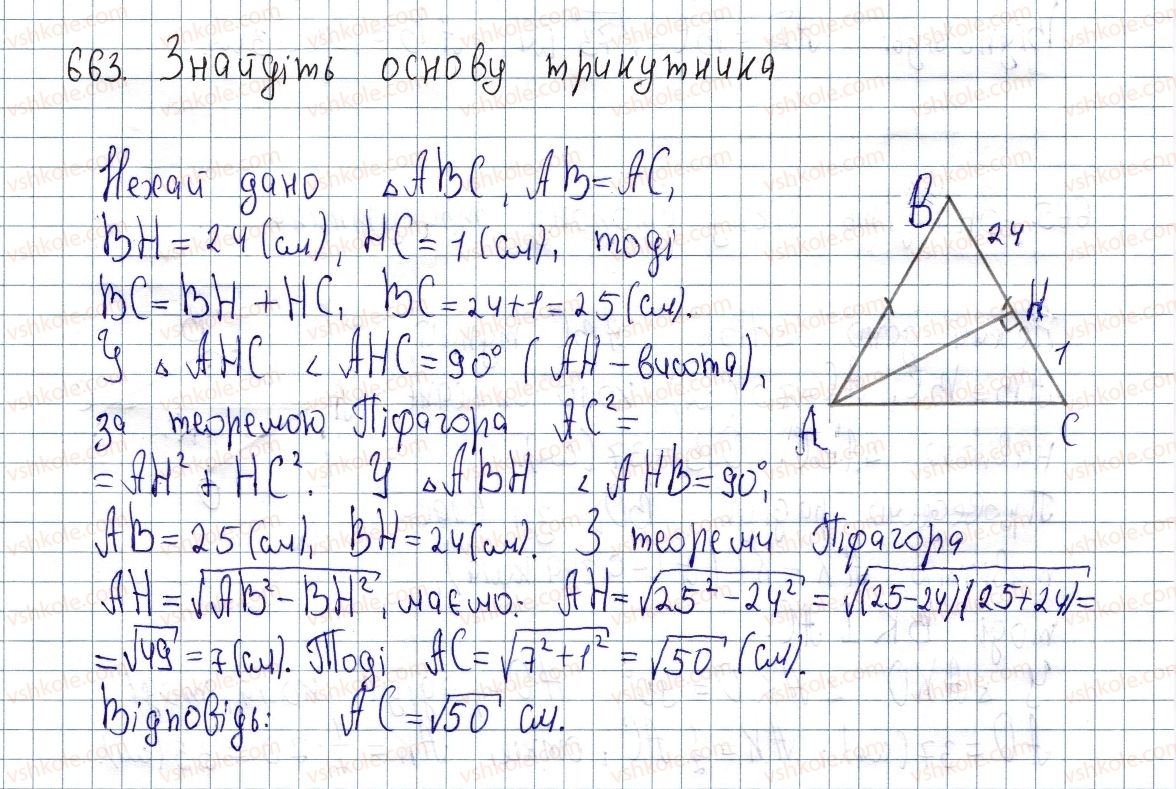 663. Знайдіть основу трикутника
Нехай дано △ABC, AB=AC,
BH=24(см), HC=1(см), тоді
BC=BH+HC, BC=24+1=25(см).
У △AHC ∠AHC=90° (AH-висота),
за теоремою Піфагора AC²=
=AH²+HC². У △ABH ∠AHB=90°,
AB=25(см), BH=24(см). З теореми Піфагора
AH=√AB²-BH², маємо: AH=√25²-24²=√(25-24)(25+24)=
=√49=7(см). Тоді AC=√7²+1²=√50 (см).
Відповідь: AC=√50 см.
B
24
H
1
A
C
vshkole.com